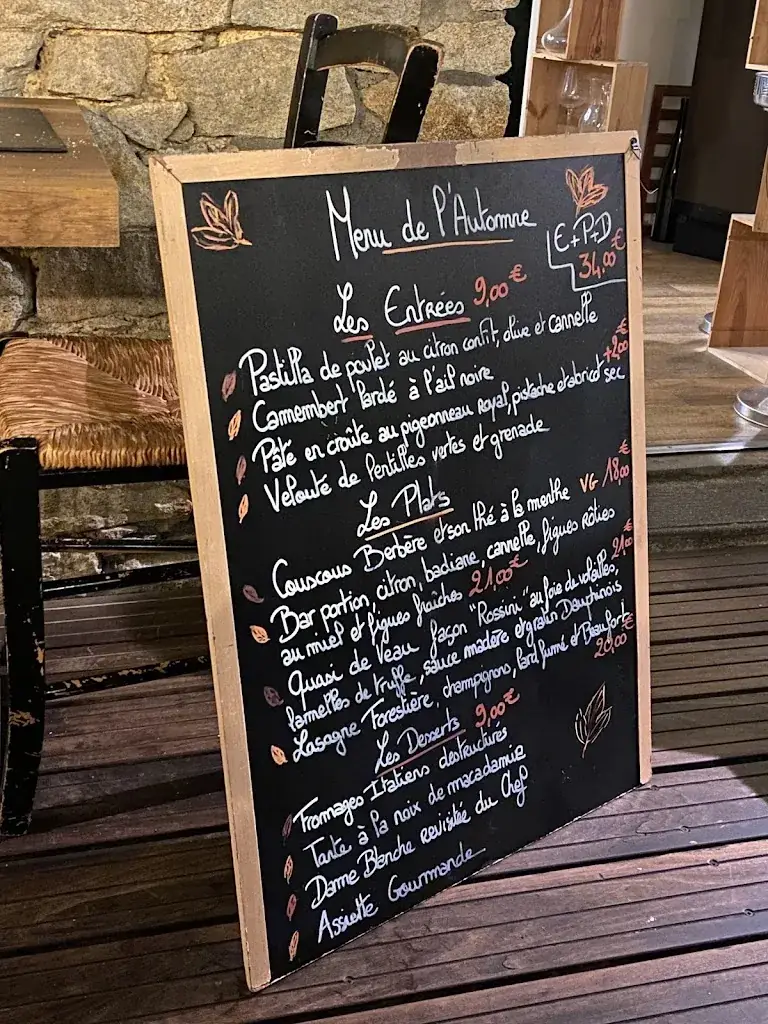 Menu de l'Automne
E+P+D
34,00€
Les Entrées 9,00€
Pastilla de poulet au citron confit, olive et cannelle
Camembert lardé à l'ail noire
+2,00€
Pâté en croûte au pigeonneau royal, pistache et abricot sec
Velouté de lentilles vertes et grenade
Les Plats
Couscous Berbère et son thé à la menthe VG 18,00€
Bar portion, citron, badiane, cannelle, figues rôties
au miel et figues fraîches 21,00€
21,00€
Quasi de Veau façon "Rossini" au foie de volailles,
lamelles de truffe, sauce madère et gratin Dauphinois
Lasagne Forestière, champignons, lard fumé et Beaufort
20,00€
Les Desserts 9,00€
Fromages Italiens destructurés
Tarte à la noix de macadamia
Dame Blanche revisitée du Chef
Assiette Gourmande